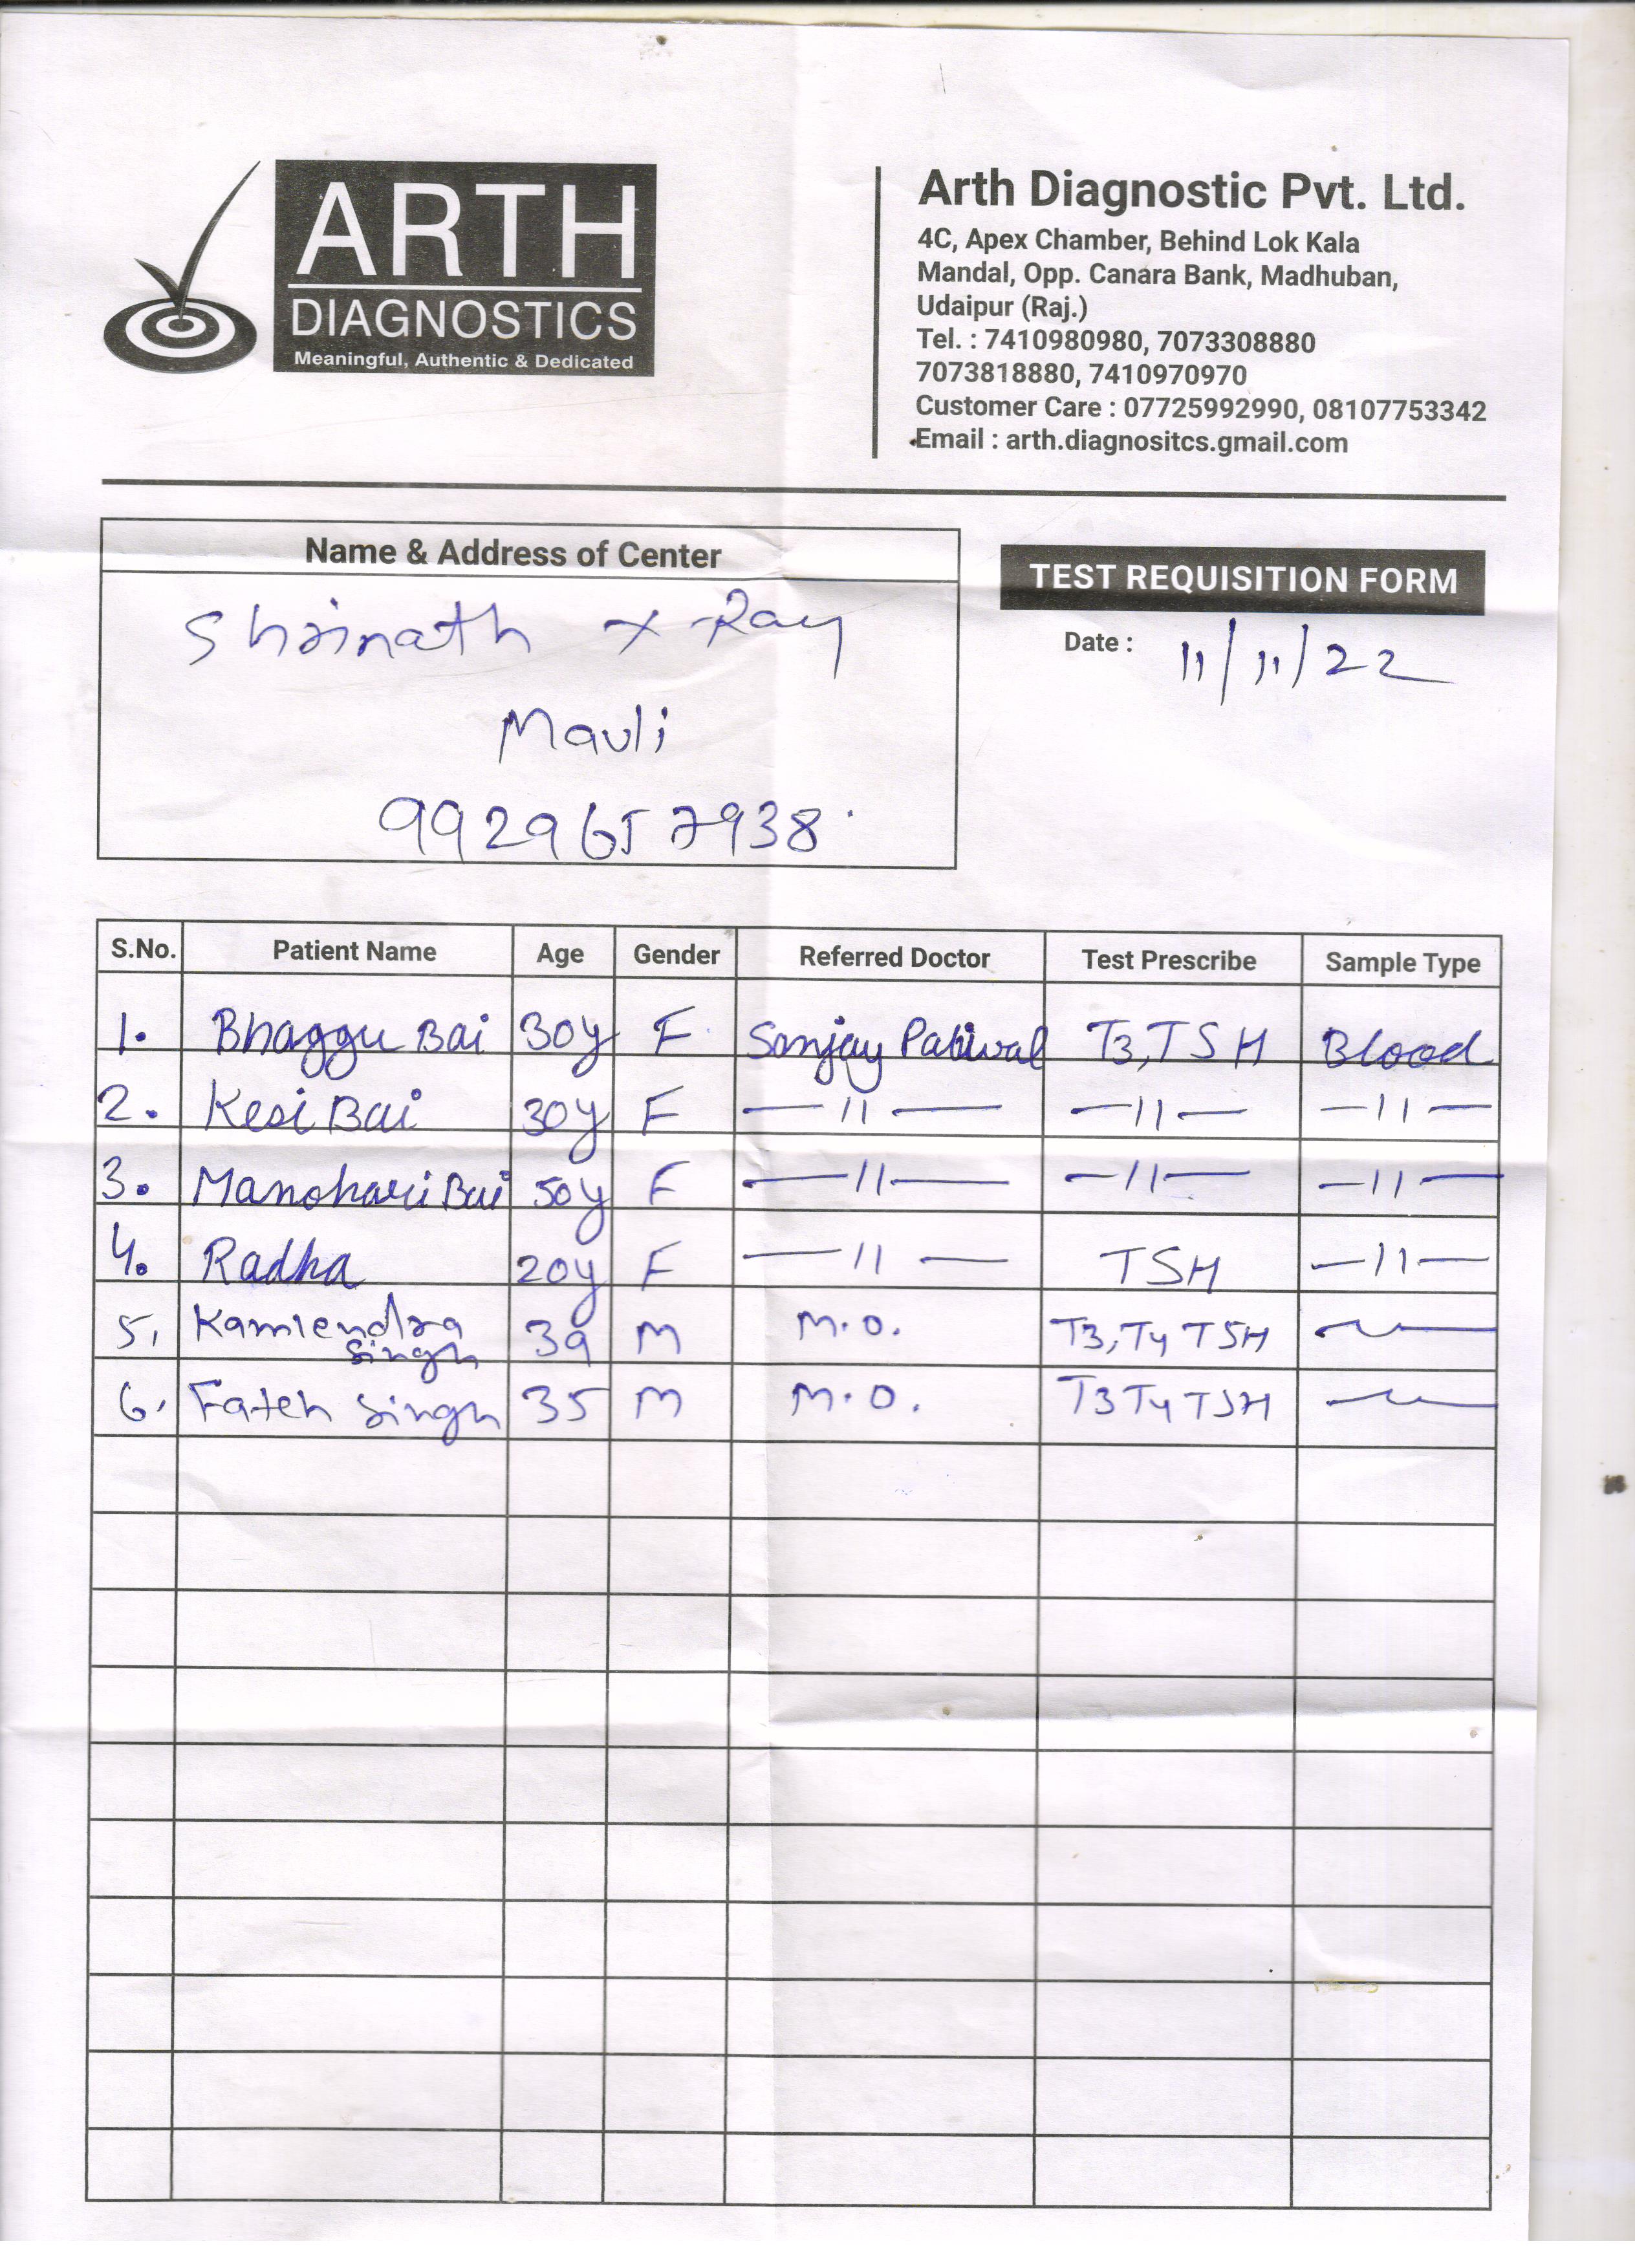 ARTH
DIAGNOSTICS
Meaningful, Authentic & Dedicated
Arth Diagnostic Pvt. Ltd.
4C, Apex Chamber, Behind Lok Kala
Mandal, Opp. Canara Bank, Madhuban,
Udaipur (Raj.)
Tel. : 7410980980, 7073308880
7073818880, 7410970970
Customer Care : 07725992990, 08107753342
Email : arth.diagnositcs.gmail.com
Name & Address of Center
Shrinath X-Ray
Mavli
9929657938
TEST REQUISITION FORM
Date : 11/11/22
S.No. Patient Name Age Gender Referred Doctor Test Prescribe Sample Type
1. Bhaggu Bai 30y F Sanjay Paliwal T3, TSH Blood
2. Kesi Bai 30y F —11— —11— —11—
3. Manohari Bai 50y F —11— —11— —11—
4. Radha 20y F —11— TSH —11—
5. Singh 39 M M.O. T3, T4 TSH
6. Fateh Singh 35 M M.O. T3 T4 TSH